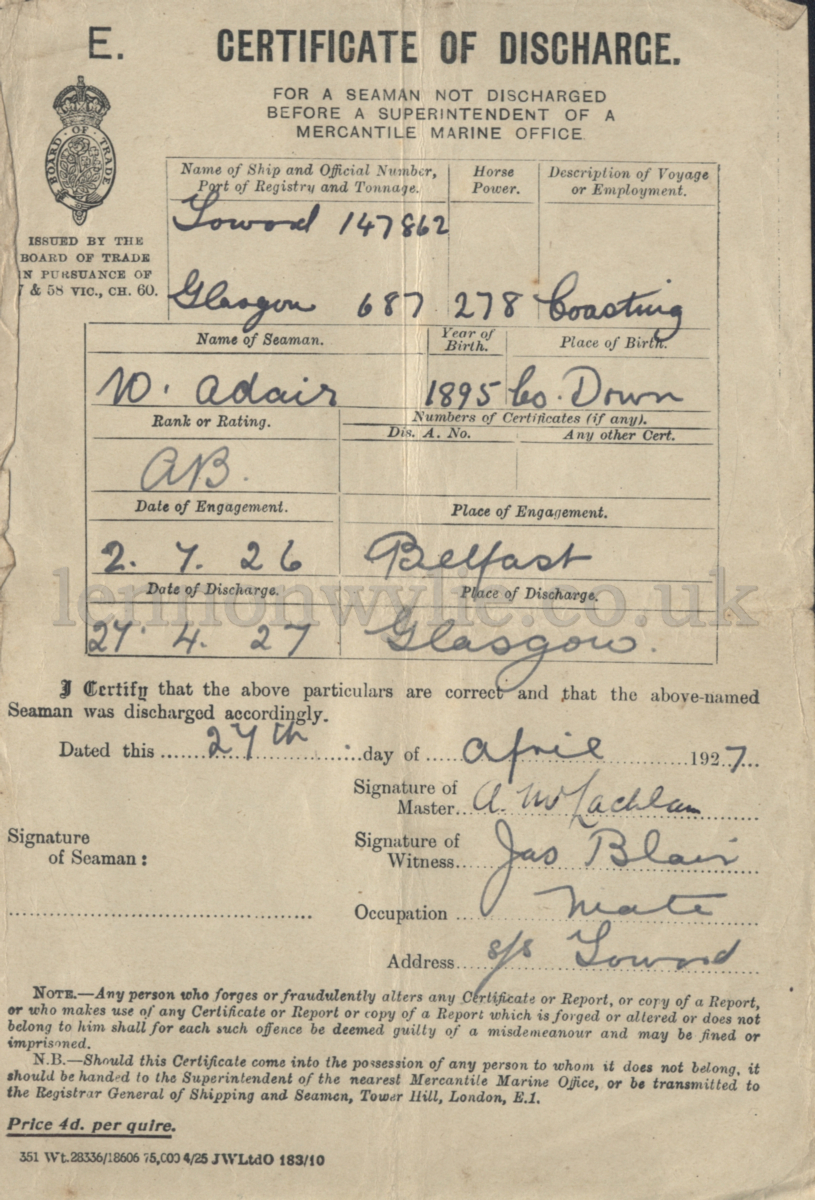 E. CERTIFICATE OF DISCHARGE.
FOR A SEAMAN NOT DISCHARGED
BEFORE A SUPERINTENDENT OF A
MERCANTILE MARINE OFFICE
BOARD OF TRADE
ISSUED BY THE
BOARD OF TRADE
IN PURSUANCE OF
7 & 58 VIC., CH. 60.
Name of Ship and Official Number,
Port of Registry and Tonnage.
Horse
Power.
Description of Voyage
or Employment.
Toward 147862
Glasgow 687 278 Coasting
Name of Seaman.
Year of
Birth.
Place of Birth.
W. Adair 1895 Co. Down
Rank or Rating.
Numbers of Certificates (if any).
Dis. A. No. Any other Cert.
AB.
Date of Engagement. Place of Engagement.
2. 7. 26 Belfast
Date of Discharge. Place of Discharge.
lennonwylie.co.uk
27. 4. 27 Glasgow.
I Certify that the above particulars are correct and that the above-named
Seaman was discharged accordingly.
Dated this 27th day of April 1927
Signature of
Master A. McLachlan
Signature
of Seaman:
Signature of
Witness Jas Blair
Occupation Mate
Address s/s Toward
NOTE.—Any person who forges or fraudulently alters any Certificate or Report, or copy of a Report,
or who makes use of any Certificate or Report or copy of a Report which is forged or altered or does not
belong to him shall for each such offence be deemed guilty of a misdemeanour and may be fined or
imprisoned.
N.B.—Should this Certificate come into the possession of any person to whom it does not belong, it
should be handed to the Superintendent of the nearest Mercantile Marine Office, or be transmitted to
the Registrar General of Shipping and Seamen, Tower Hill, London, E.1.
Price 4d. per quire.
351 Wt.28336/18606 75,000 4/25 JWLtdO 183/10